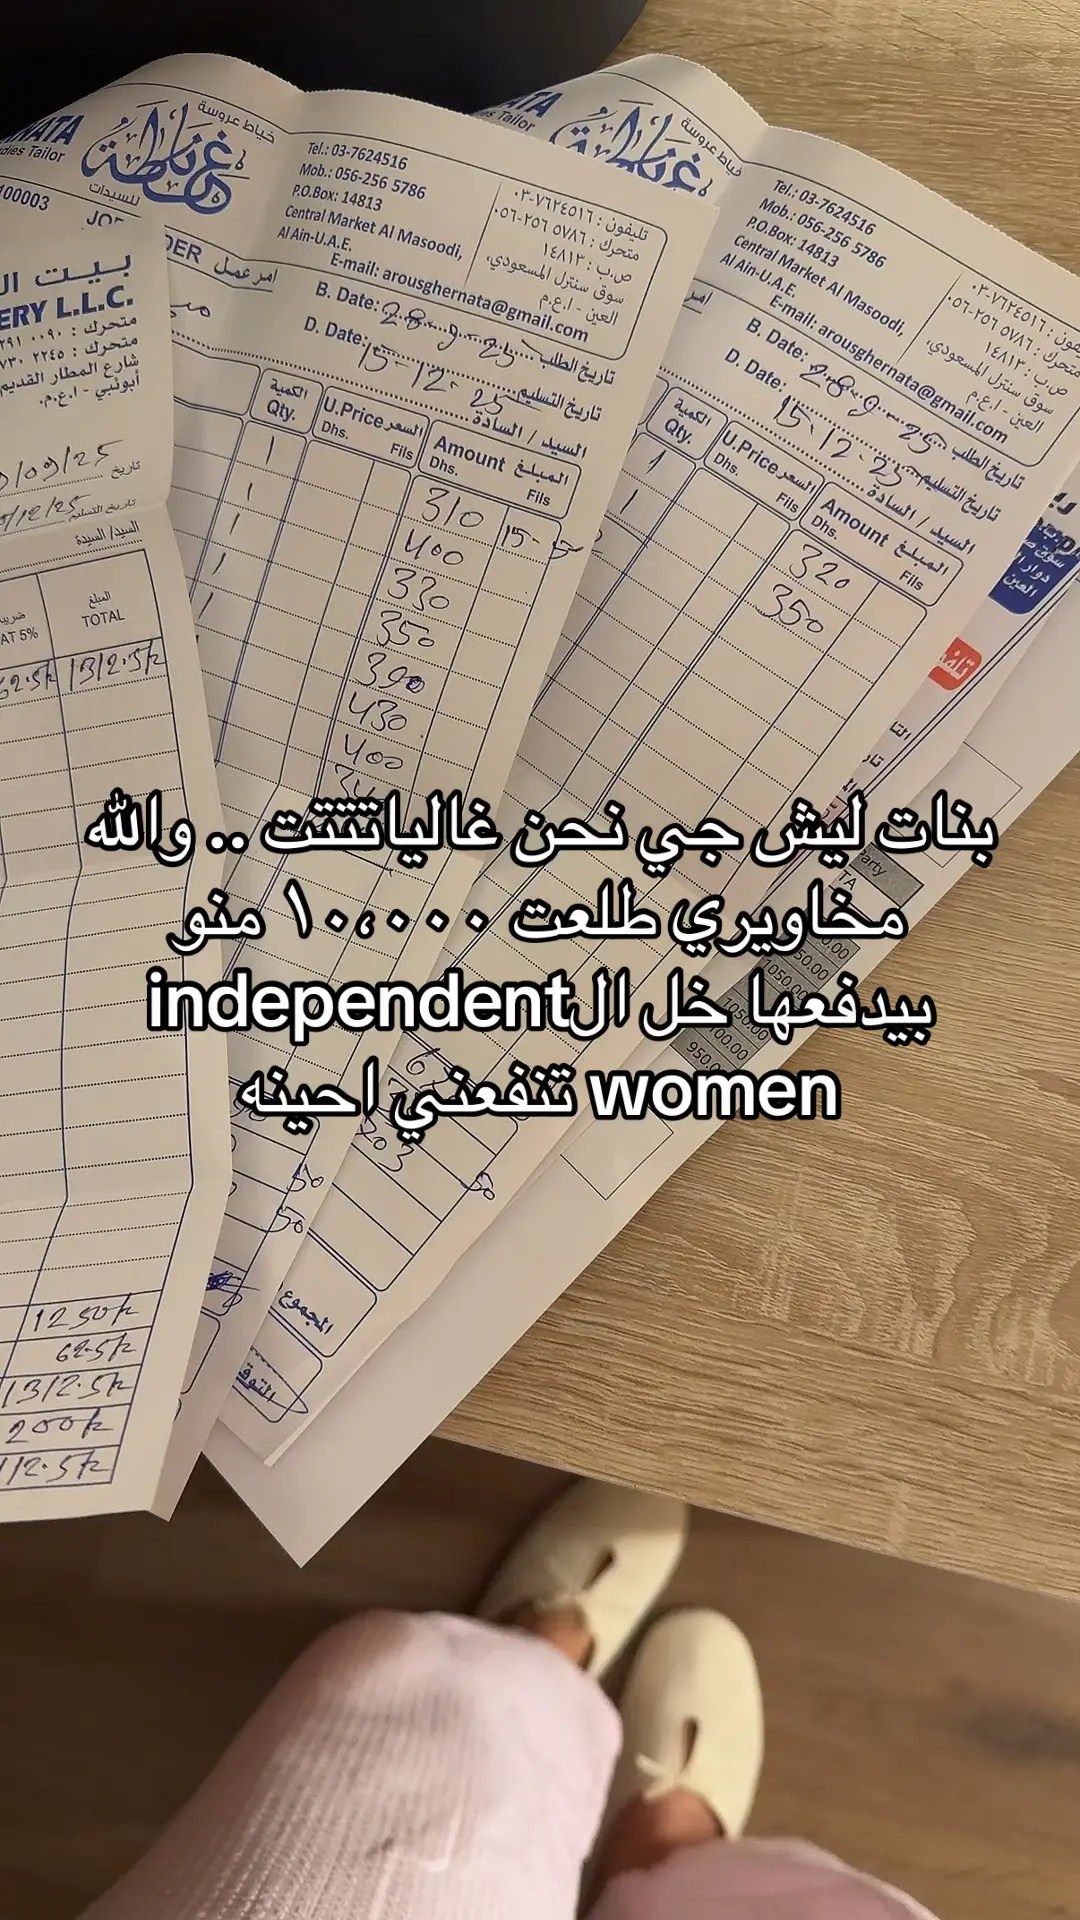 خياط عروسة
غرناطة
للسيدات
NATA
dies Tailor
00003
Tel.: 03-7624516
Mob.: 056-256 5786
P.O.Box: 14813
Central Market Al Masoodi,
Al Ain-U.A.E.
E-mail: arousghernata@gmail.com
تليفون : ٠٣-٧٦٢٤٥١٦
متحرك : ٠٥٦-٢٥٦ ٥٧٨٦
ص.ب : ١٤٨١٣
سوق سنترل المسعودي،
العين - ا.ع.م
DER امر عمل
B. Date: 28-9-25 تاريخ الطلب
D. Date: 15-12-25 تاريخ التسليم
السيد / السادة
الكمية Qty.
U.Price السعر
Dhs. Fils
Amount المبلغ
Dhs. Fils
1 310
1 400
1 330
1 350
1 390
430
400
خياط عروسة
غرناطة
ATA
es Tailor
Tel.: 03-7624516
Mob.: 056-256 5786
P.O.Box: 14813
Central Market Al Masoodi,
Al Ain-U.A.E.
E-mail: arousghernata@gmail.com
٠٣-٧٦٢٤٥١٦
متحرك : ٠٥٦-٢٥٦ ٥٧٨٦
ص.ب : ١٤٨١٣
سوق سنترل المسعودي،
العين - ا.ع.م
B. Date: 28-9-25 تاريخ الطلب
D. Date: 15-12-25 تاريخ التسليم
السيد / السادة
الكمية Qty.
U.Price السعر
Dhs. Fils
Amount المبلغ
Dhs. Fils
1 320
1 350
المجموع
بيت
ERY L.L.C.
متحرك : ٠٠٩٠ ٢٩١
متحرك : ٢٢٤٥ ٧٣٠
شارع المطار القديم
أبوظبي - ا.ع.م.
تاريخ /09/25
تاريخ التسليم /12/25
السيد/ السيدة
AT 5%
المبلغ
TOTAL
62.5 1312.5
1250
62.5
1312.5
200
112.5
دوار
العين
arty
TA
050.00
1050.00
100.00
950.
بنات ليش جي نحن غالياتتتتت .. والله
مخاويري طلعت ١٠،٠٠٠ منو
بيدفعها خل الindependent
women تنفعني احينه